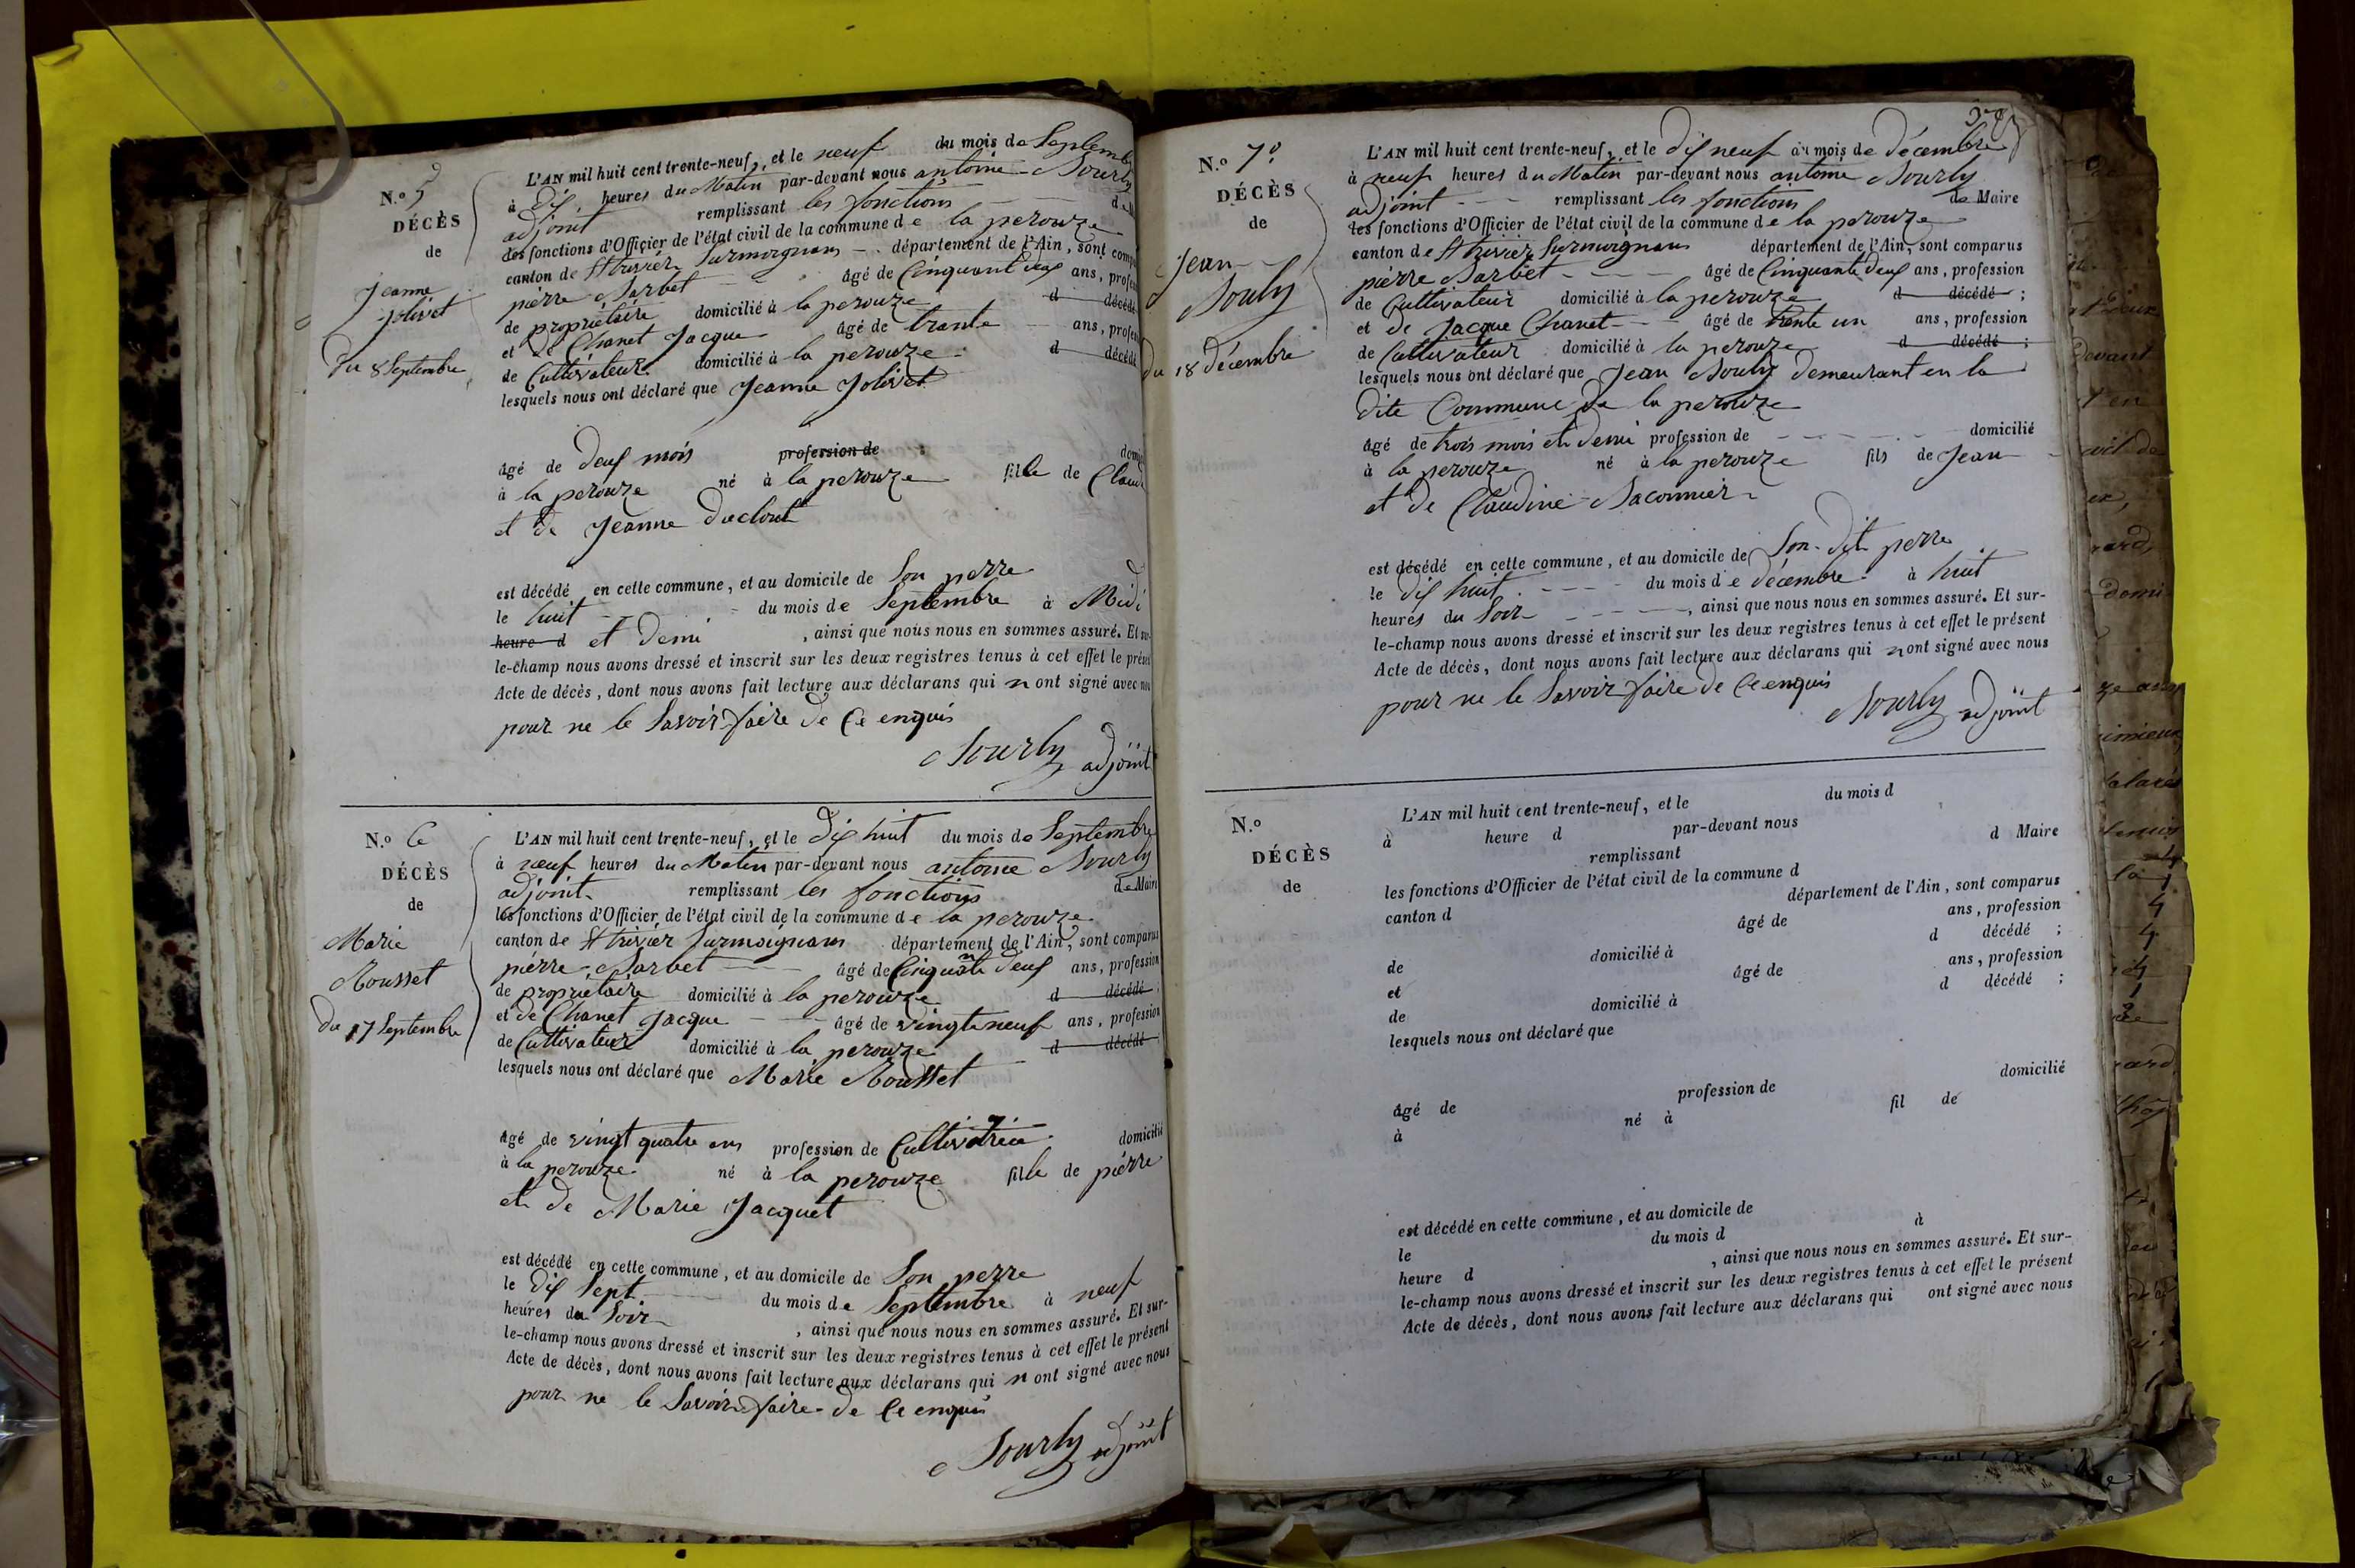 N.o 5
DÉCÈS
de
Jeanne
Jolivet
Du 8 Septembre
L'AN mil huit cent trente-neuf, et le neuf du mois de Septemb
à dix heures du Matin par-devant nous antoine Sourly
adjoint remplissant les fonctions de M
des fonctions d'Officier de l'état civil de la commune de la perouze
canton de St trivier Surmoignans département de l'Ain, sont comp
pièrre Barbet âgé de Cinquant deux ans, profess
de propriétaire domicilié à la perouze d décédé
et de Chanet Jacque âgé de trante ans, profess
de Cultivateur domicilié à la perouze d décédé
lesquels nous ont déclaré que Jeanne Jolivet
âgé de deux mois profession de domi
à la perouze né à la perouze fille de Clau
et de Jeanne Duclout
est décédé en cette commune, et au domicile de Son perre
le huit du mois de Septembre à Midi
heure d et demi , ainsi que nous nous en sommes assuré. Et sur-
le-champ nous avons dressé et inscrit sur les deux registres tenus à cet effet le présen
Acte de décès, dont nous avons fait lecture aux déclarans qui n ont signé avec nou
pour ne le Savoir faire de Ce enquis
Sourly adjoint
N.o 6
DÉCÈS
de
Marie
Rousset
Du 17 Septembre
L'AN mil huit cent trente-neuf, et le dix huit du mois de Septembre
à neuf heures du Matin par-devant nous antoine Sourly
adjoint remplissant les fonctions de Maire
les fonctions d'Officier de l'état civil de la commune de la perouze
canton de St trivier Surmoignans département de l'Ain, sont comparus
pièrre Barbet âgé de Cinquante deux ans, profession
de propriétaire domicilié à la perouze d décédé ;
et de Chanet Jacque âgé de vingt neuf ans, profession
de Cultivateur domicilié à la perouze d décédé
lesquels nous ont déclaré que Marie Rousset
âgé de vingt quatre ans profession de Cultivatrice domicilié
à la perouze né à la perouze fille de pièrre
et de Marie Jacquet
est décédé en cette commune, et au domicile de Son perre
le dix Sept du mois de Septembre à neuf
heures du Soir , ainsi que nous nous en sommes assuré. Et sur-
le-champ nous avons dressé et inscrit sur les deux registres tenus à cet effet le présent
Acte de décès, dont nous avons fait lecture aux déclarans qui n ont signé avec nous
pour ne le Savoir faire de Ce enquis
Sourly adjoint
N.o 7o
DÉCÈS
de
Jean
Souly
Du 18 décembre
L'AN mil huit cent trente-neuf, et le dix neuf du mois de décembre
à neuf heures du Matin par-devant nous antoine Sourly
adjoint remplissant les fonctions de Maire
les fonctions d'Officier de l'état civil de la commune de la perouze
canton de St trivier Surmoignans département de l'Ain, sont comparus
pièrre Barbet âgé de Cinquante deux ans, profession
de Cultivateur domicilié à la perouze d décédé ;
et de Jacque Chanet âgé de trente un ans, profession
de Cultivateur domicilié à la perouze d décédé ;
lesquels nous ont déclaré que Jean Souly demeurant en la
dite Commune de la perouze
âgé de trois mois et demi profession de domicilié
à la perouze né à la perouze fils de Jean
et de Claudine Saconnier
est décédé en cette commune, et au domicile de Son dit perre
le dix huit du mois de décembre à huit
heures du Soir , ainsi que nous nous en sommes assuré. Et sur-
le-champ nous avons dressé et inscrit sur les deux registres tenus à cet effet le présent
Acte de décès, dont nous avons fait lecture aux déclarans qui n ont signé avec nous
pour ne le Savoir faire de Ce enquis
Sourly adjoint
N.o
DÉCÈS
de
L'AN mil huit cent trente-neuf, et le du mois d
à heure d par-devant nous
remplissant d Maire
les fonctions d'Officier de l'état civil de la commune d
canton d département de l'Ain, sont comparus
âgé de ans, profession
de domicilié à d décédé ;
et âgé de ans, profession
de domicilié à d décédé ;
lesquels nous ont déclaré que
âgé de profession de domicilié
à né à fil de
est décédé en cette commune, et au domicile de
le du mois d à
heure d , ainsi que nous nous en sommes assuré. Et sur-
le-champ nous avons dressé et inscrit sur les deux registres tenus à cet effet le présent
Acte de décès, dont nous avons fait lecture aux déclarans qui ont signé avec nous